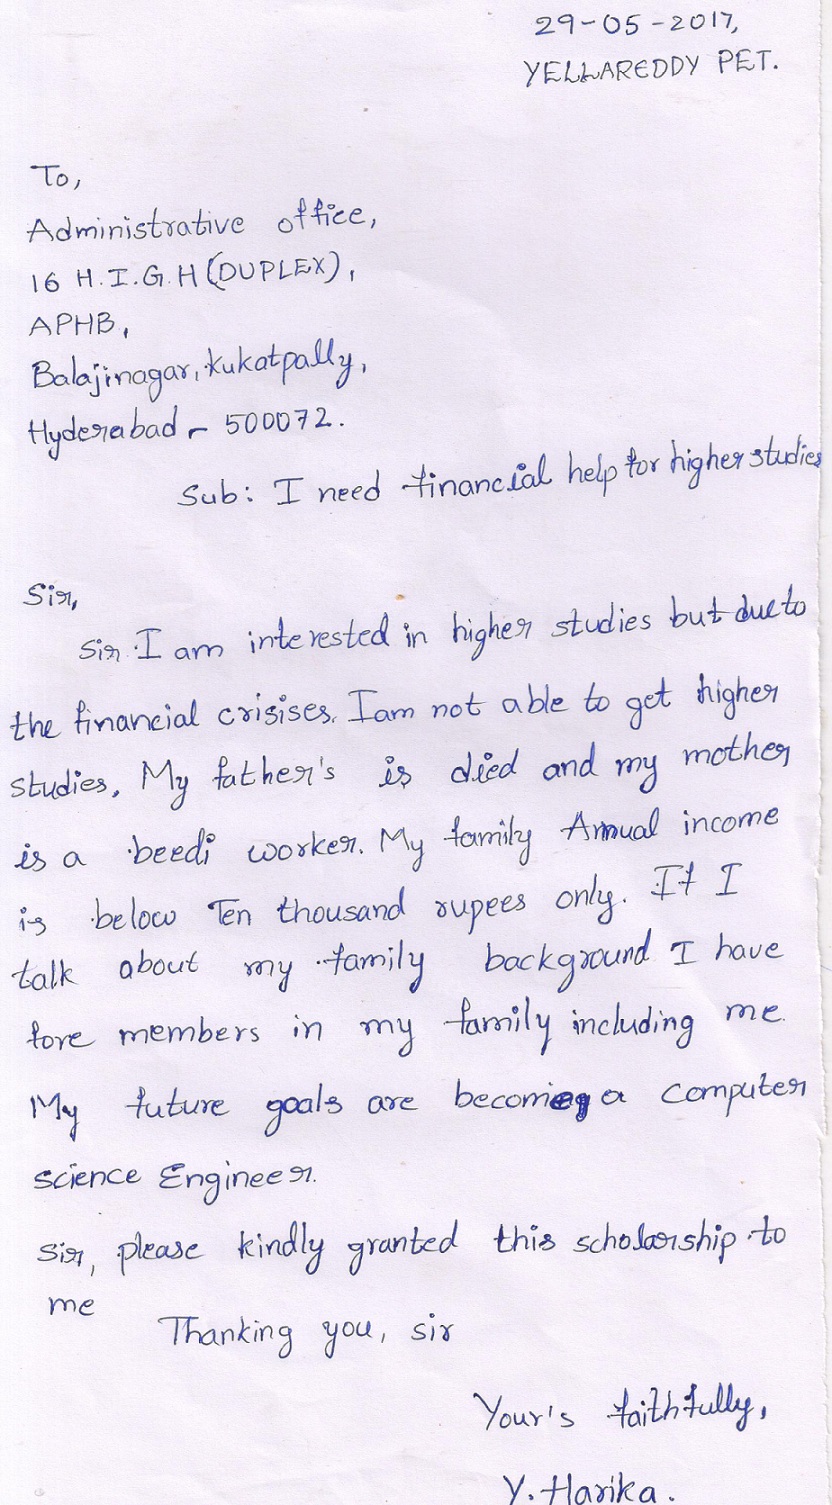 29-05-2017,
YELLAREDDY PET.
To,
Administrative office,
16 H.I.G.H (DUPLEX),
APHB,
Balajinagar, kukatpally,
Hyderabad - 500072.
Sub: I need financial help for higher studies
Sir,
Sir I am interested in higher studies but due to
the financial crisises. Iam not able to get higher
studies. My father's is died and my mother
is a beedi worker. My family Annual income
is below Ten thousand rupees only. If I
talk about my family background I have
fore members in my family including me.
My future goals are becomeg a computer
science Engineer.
Sir, please kindly granted this scholarship to
me
Thanking you, sir
Your's faithfully,
Y. Harika.